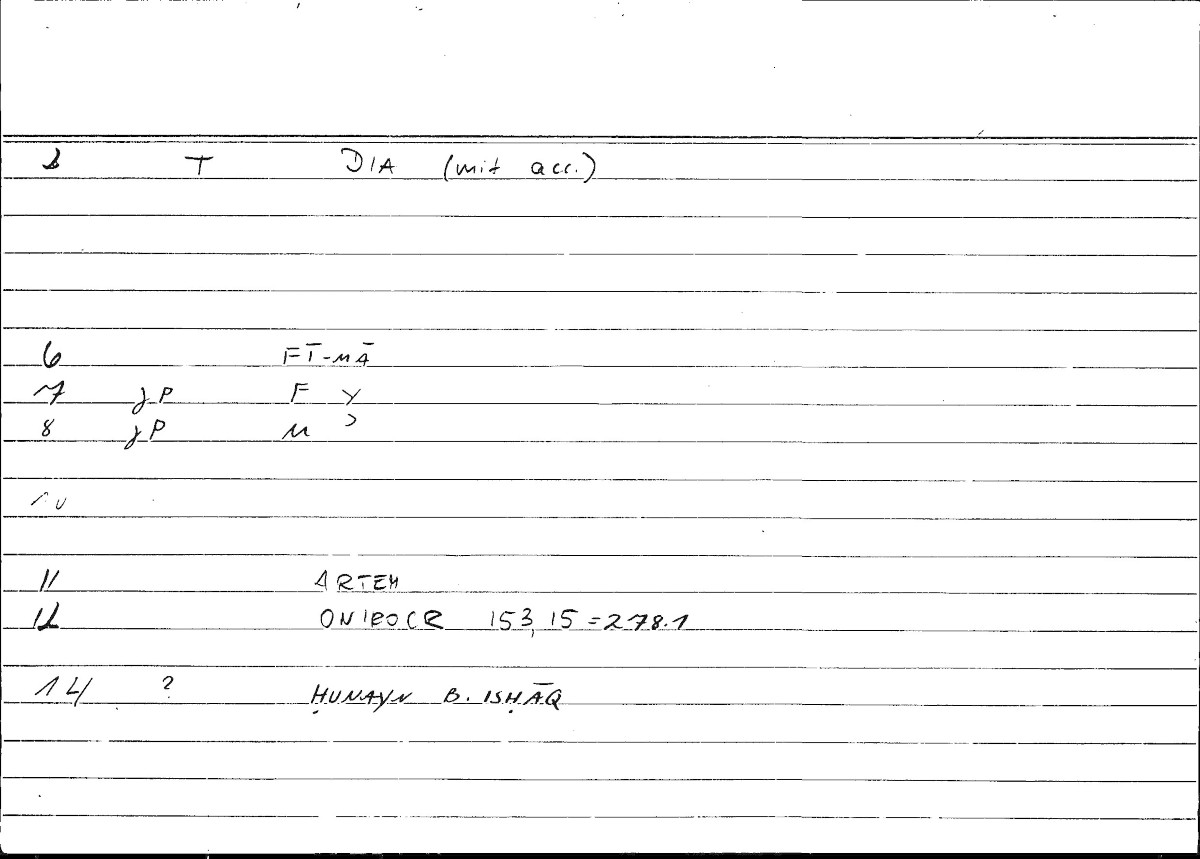 1 T DIA (mit acc.)
6 FĪ-MĀ
7 γP F Y
8 γP M
10
11 ARTEM
12 ONIROCR 153,15 = 278.1
14 ? ḤUNAYN B. ISḤĀQ